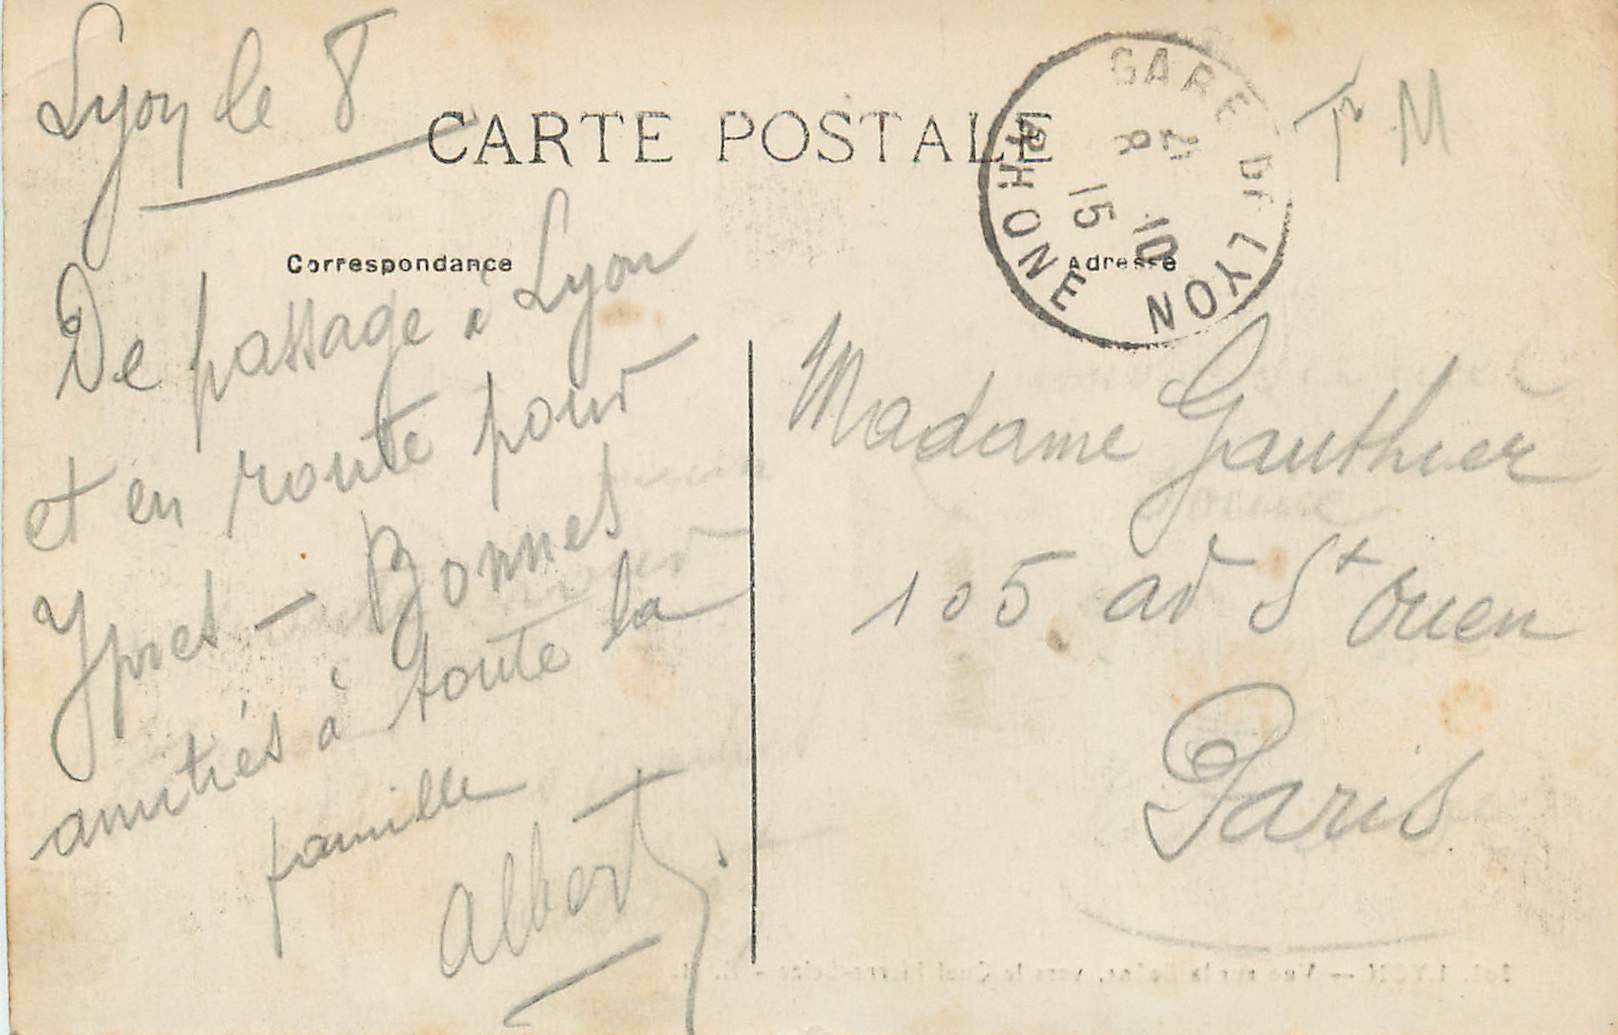 Lyon le 8
CARTE POSTALE
Tr M
GARE DE LYON
RHONE
21
8 10
15
Correspondance
Adresse
De passage à Lyon
et en route pour
Ypres - Bonnes
amitiés à toute la
famille
Albert
Madame Gauthier
105 av St Ouen
Paris